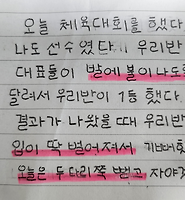 오늘 체육대회를 했다
나도 선수였다. 우리반
대표들이 발에 불이 나도록
달려서 우리반이 1등 했다.
결과가 나왔을 때 우리반
입이 딱 벌어져서 기뻐했
오늘은 두 다리 쭉 뻗고 자야겠